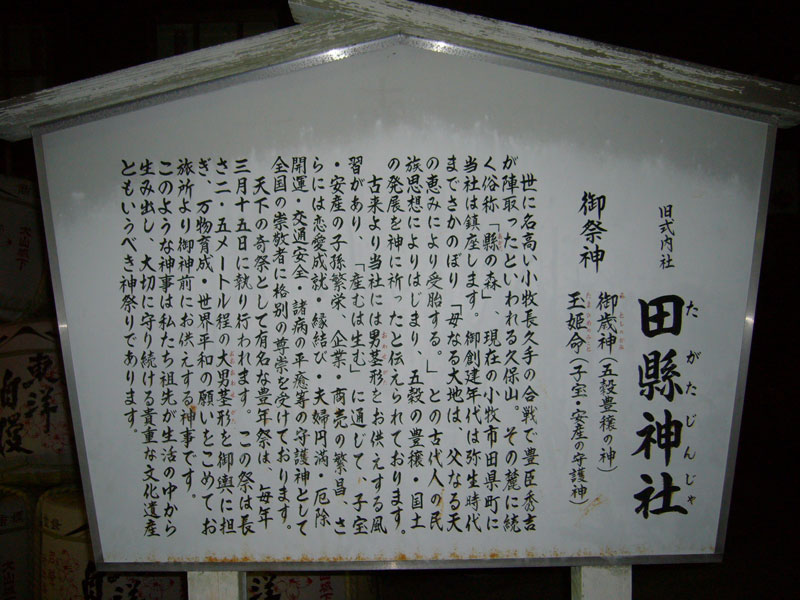 旧式内社
田縣神社
たがたじんじゃ
御祭神
御歳神(五穀豊穣の神)
玉姫命(子宝・安産の守護神)
世に名高い小牧長久手の合戦で豊臣秀吉
が陣取ったといわれる久保山。その麓に続
く俗称「縣の森」、現在の小牧市田県町に
当社は鎮座します。御創建年代は弥生時代
までさかのぼり「母なる大地は、父なる天
の恵みにより受胎する。」との古代人の民
族思想によりはじまり、五穀の豊穣・国土
の発展を神に祈ったと伝えられております。
古来より当社には男茎形をお供えする風
習があり、「産むは生む」に通じて、子宝
・安産の子孫繁栄、企業・商売の繁昌、さ
らには恋愛成就・縁結び・夫婦円満・厄除
開運・交通安全・諸病の平癒等の守護神として
全国の崇敬者に格別の尊崇を受けております。
天下の奇祭として有名な豊年祭は、毎年
三月十五日に執り行われます。この祭は長
さ二・五メートル程の大男茎形を御輿に担
ぎ、万物育成・世界平和の願いをこめてお
旅所より御神前にお供えする神事です。
このような神事は私たち祖先が生活の中から
生み出し、大切に守り続ける貴重な文化遺産
ともいうべき神祭りであります。
東洋
自慢